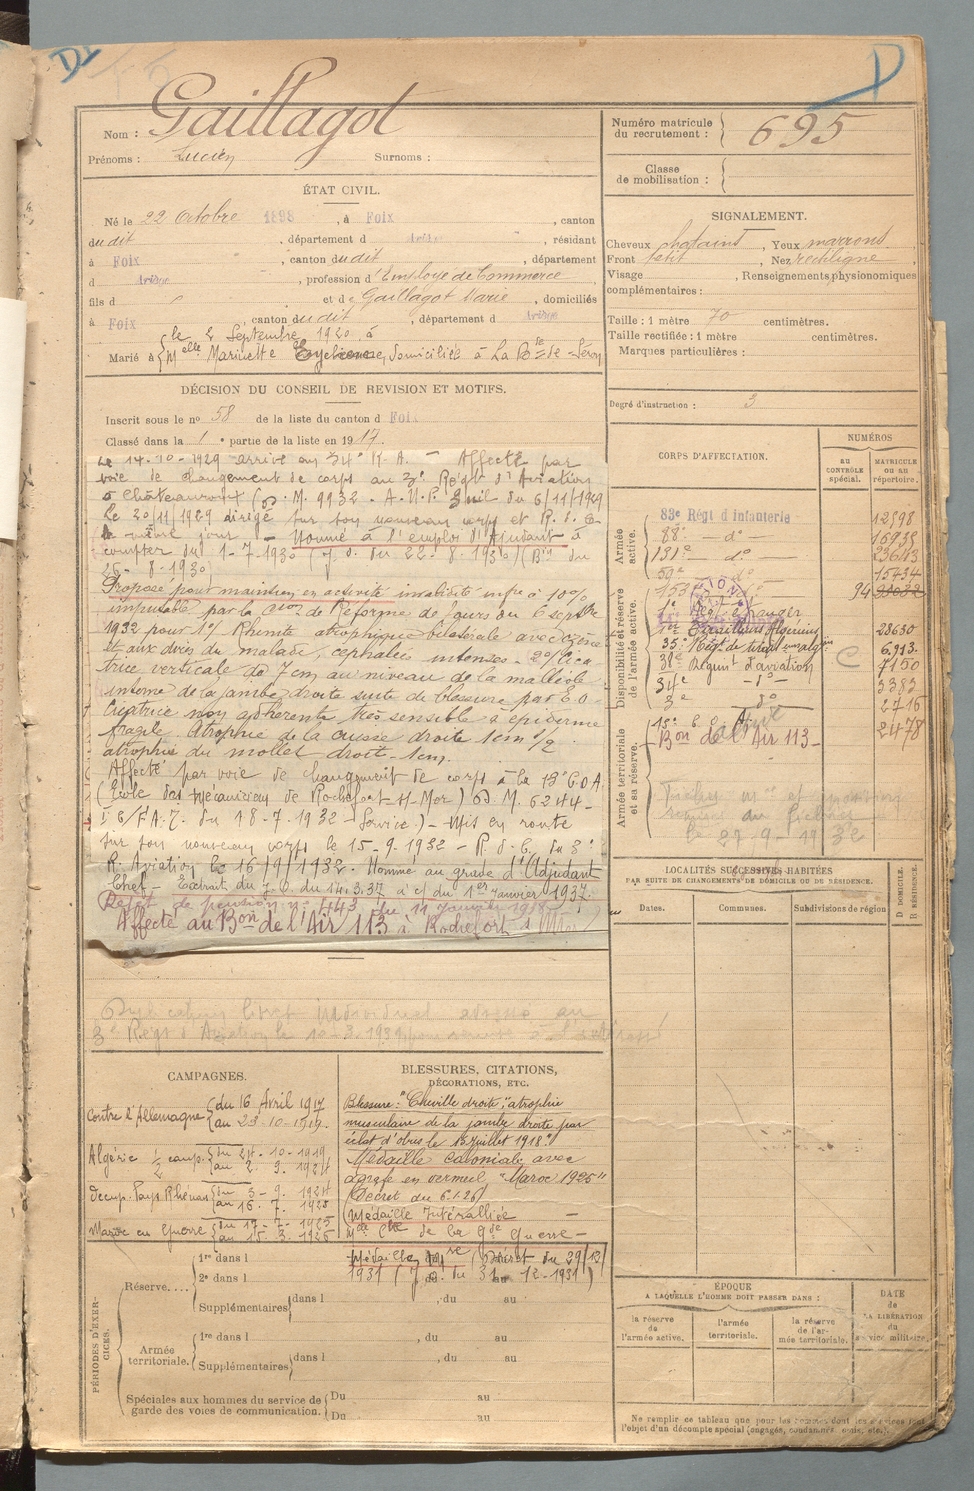 Gaillagot
Nom :
Prénoms : Lucien Surnoms :
ÉTAT CIVIL.
Né le 22 Octobre 1898, à Foix, canton
du dit, département d Ariège, résidant
à Foix, canton du dit, département
d Ariège, profession d'Employé de Commerce
fils d et de Gaillagot Marie, domiciliés
à Foix, canton du dit, département d Ariège
Marié à le 2 Septembre 1920 à
Melle Marinette domiciliée à La Bde de
DÉCISION DU CONSEIL DE REVISION ET MOTIFS.
Inscrit sous le no 58 de la liste du canton d Foix
Classé dans la 1e partie de la liste en 1917.
Le 14-10-1929 arrivé au 34e R.A. - Affecté par
voie de changement de corps au 3e Régt d'Aviation
à Châteauroux (D. M. 9932 - A.U.P. du 6/11/1929
Le 20/11/1929 dirigé sur son nouveau corps et R. d. C.
le même jour - Nommé à l'emploi d'Adjudant à
compter du 1-7-1930 (J.O. du 22-8-1930) (Bin du
26-8-1930)
Proposé pour maintien en activité invalidité infre à 10%
imputable par la Cion de Réforme de Tours du 6 septbre
1932 pour 1°/ Rhinite atrophique bilatérale avec
et aux dires du malade, céphalées intenses - 2°/ Cica
trice verticale de 7 cm au niveau de la malléole
interne de la jambe droite suite de blessure par E.O.
Cicatrice non adhérente très sensible à épiderme
fragile. Atrophie de la cuisse droite 1cm 1/2
atrophie du mollet droit - 1cm.
Affecté par voie de changement de corps à la 13e C.O.A
(Ecole des Mécaniciens de Rochefort-s-Mer) D. M. 6244 -
du 18-7-1932 - Service.) - Mis en route
sur son nouveau corps le 15-9-1932 - R. d. C. du 3e
R. Aviation le 16/9/1932. Nommé au grade d'Adjudant
Chef - Extrait du J.O. du 14.3.37 à c/ du 1er Janvier 1937.
Rejet de pension no 443 du 11 janvier
Affecté au Bon de l'Air 113 à Rochefort s/ Mer
livret individuel au
3e Régt d'Aviation le
CAMPAGNES.
Contre l'Allemagne du 16 Avril 1917
au 23-10-1919.
Algérie 1/2 camp. du 24-10-1919
au 2-9-1924
Occup. Pays Rhénans du 3-9-1924
au 16-7-1925
Maroc en Guerre du 17-7-1925
au 15-3-1926
BLESSURES, CITATIONS,
DÉCORATIONS, ETC.
Blessure: "Cheville droite, atrophie
musculaire de la jambe droite par
éclat d'obus le 15 juillet 1918"
Médaille Coloniale avec
agrafe en vermeil "Maroc 1925"
(Décret du 6.1.26)
Médaille Interalliée
Mde Cve de la Gde Guerre -
Médaille Mre (Décret du 29/12/
1931 (J.O. du 31-12-1931)
PÉRIODES D'EXER-
CICES.
Réserve....
1re dans l
2e dans l , du au
Supplémentaires dans l , du au
Armée
territoriale.
1re dans l , du au
Supplémentaires dans l , du au
Spéciales aux hommes du service de
garde des voies de communication. Du au
Du au
D
Numéro matricule
du recrutement : 695
Classe
de mobilisation :
SIGNALEMENT.
Cheveux chatains, Yeux marrons,
Front petit, Nez rectiligne,
Visage , Renseignements physionomiques
complémentaires :
Taille : 1 mètre 70 centimètres.
Taille rectifiée : 1 mètre centimètres.
Marques particulières :
Degré d'instruction : 3
CORPS D'AFFECTATION.
NUMÉROS
AU
CONTRÔLE
SPÉCIAL.
MATRICULE
OU AU
RÉPERTOIRE.
Armée
active.
83e Régt d'Infanterie 12598
88e - do - 16935
131e - do - 23643
59e do 15434
Disponibilité et réserve
de l'armée active.
1e Régt étranger
1er Tirailleurs Algériens 28630
35e Régt de tiraill. 6.913.
38e Régiment d'aviation C 7150
34e - do - 3383
3e do 2716
Armée territoriale
et sa réserve.
Bon de l'Air 113 - 2478
27-9-1932
LOCALITÉS SUCCESSIVES HABITÉES
PAR SUITE DE CHANGEMENTS DE DOMICILE OU DE RÉSIDENCE.
Dates.
Communes.
Subdivisions de région
D DOMICILE.
R RÉSIDENCE.
ÉPOQUE
A LAQUELLE L'HOMME DOIT PASSER DANS :
la réserve
de
l'armée active.
l'armée
territoriale.
la réserve
de l'ar-
mée territoriale.
DATE
de
LA LIBÉRATION
du
service militaire.
Ne remplir ce tableau que pour les hommes dont les services font
l'objet d'un décompte spécial (engagés, condamnés, omis, etc.).